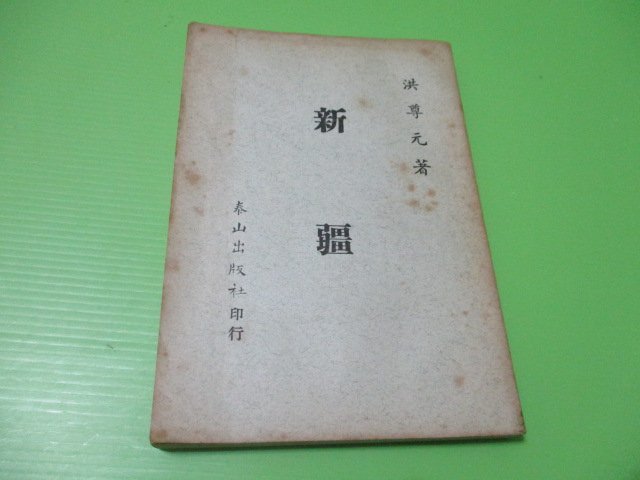 洪尊元著
新疆
泰山出版社印行